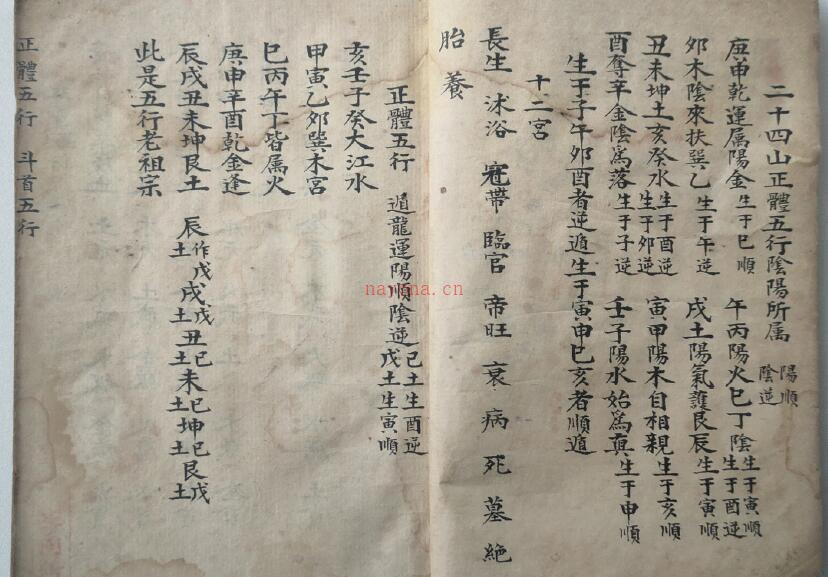 二十四山正體五行陰陽所属 陽順 陰逆
庚申乾運属陽金 生于巳順 午丙陽火巳丁陰 生于寅順 生于酉逆
夘木陰來扶巽乙 生于午逆 戌土陽氣護艮辰 生于寅順
丑未坤土亥癸水 生于酉逆 生于夘逆 寅甲陽木自相親 生于亥順
酉奪辛金陰爲落 生于子逆 壬子陽水始爲真 生于申順
生于子午夘酉者逆遁生于寅申巳亥者順遁
十二宮
長生 沐浴 冠帶 臨官 帝旺 衰 病 死 墓 絕
胎 養
正體五行 遁龍運陽順陰逆 己土生酉逆 戊土生寅順
亥壬子癸大江水
甲寅乙夘巽木宮
巳丙午丁皆属火
庚申辛酉乾金逢
辰戌丑未坤艮土 辰土作戊 戌土戊 丑土己 未土己 坤土己 艮土戊
此是五行老祖宗
正體五行 斗首五行
nayona.cn